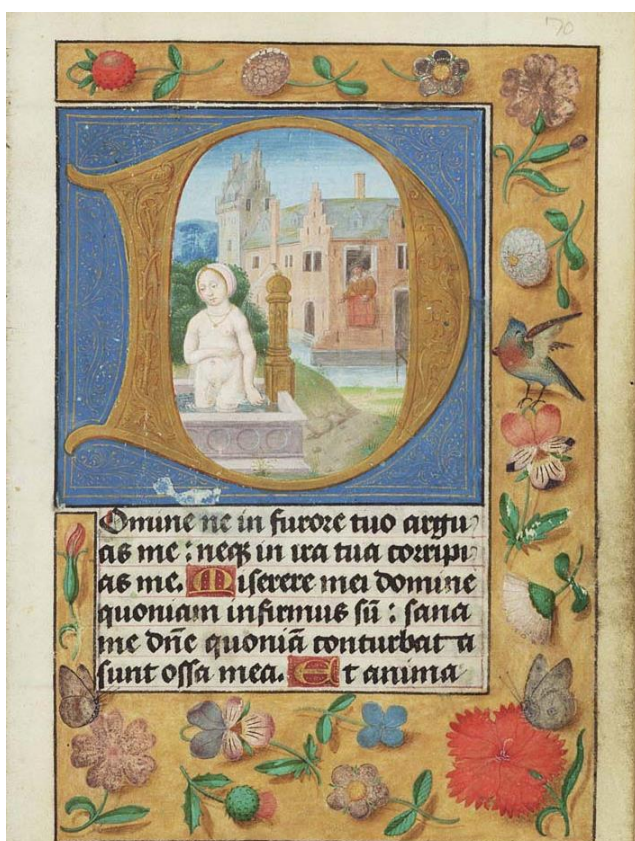 70
Domine ne in furore tuo argu
as me : neqꝫ in ira tua corripi
as me. Miserere mei domine
quoniam infirmus sū : sana
me dn̄e quoniā conturbat a
sunt ossa mea. Et anima